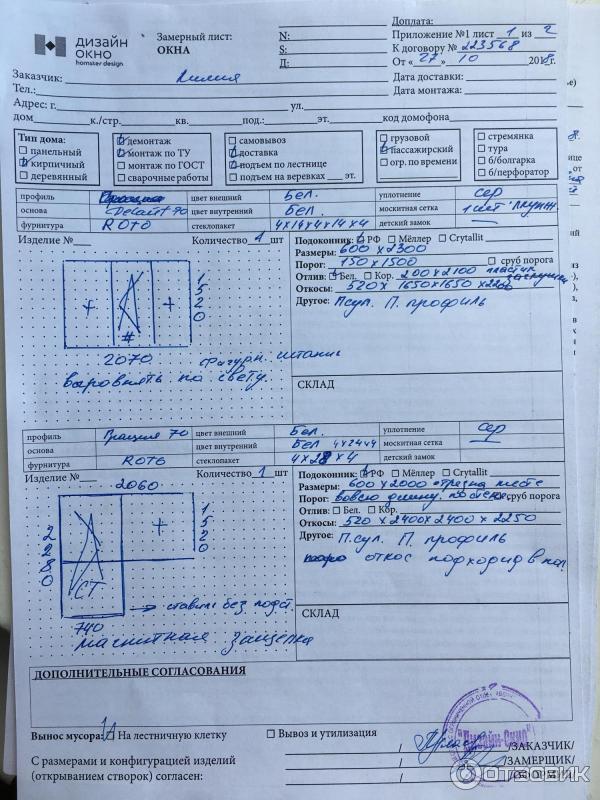 ДИЗАЙН
ОКНО
homster design
Замерный лист:
ОКНА
N:
S:
Д:
Доплата:
Приложение №1 лист 1 из 2
К договору № 223568
От «27» 10 2018г.
Заказчик: Лилия
Дата доставки:
Тел.:
Дата монтажа:
Адрес: г. ул.
дом к./стр. кв. под.: эт. код домофона
Тип дома:
панельный
кирпичный
деревянный
демонтаж
монтаж по ТУ
монтаж по ГОСТ
сварочные работы
самовывоз
доставка
подъем по лестнице
подъем на веревках эт.
грузовой
пассажирский
огр. по времени
стремянка
тура
б/болгарка
б/перфоратор
профиль цвет внешний Бел. уплотнение Сер
основа Делайт 70 цвет внутренний Бел. москитная сетка 1 шт
фурнитура ROTO стеклопакет 4x14x4x14x4 детский замок
Изделие № Количество 1 шт
Подоконник: РФ Мёллер Crytallit
Размеры: 600 x 2300
Порог: 150 x 1500 сруб порога
Отлив: Бел. Кор. 200 x 2100 пластик
заглушки
Откосы: 520 x 1650x1650 x 2200
Другое: Псул. П. профиль
+ +
#
1520
2070
фигурн. штапик
выровнять по свету.
СКЛАД
профиль Грация 70 цвет внешний Бел. уплотнение Сер
основа цвет внутренний Бел 4x24x4 москитная сетка
фурнитура ROTO стеклопакет детский замок
Изделие № Количество 1 шт
Подоконник: РФ Мёллер Crytallit
Размеры: 600 x 2000 отрезка месте
Порог: вовсю длинну. по стене. сруб порога
Отлив: Бел. Кор.
Откосы: 520 x 2400x2400 x 2250
Другое: П.сул. П. профиль
откос подходид в пол.
2060
+
1520
2280
СТ
740
ставить без подст.
магнитная защелка
СКЛАД
ДОПОЛНИТЕЛЬНЫЕ СОГЛАСОВАНИЯ
Вынос мусора: На лестничную клетку Вывоз и утилизация
С размерами и конфигурацией изделий
(открыванием створок) согласен:
/ /ЗАКАЗЧИК/
/ /ЗАМЕРЩИК/
/ /ОФОРМИЛ/
"Дизайн-Окно"
ОТЗОВИК